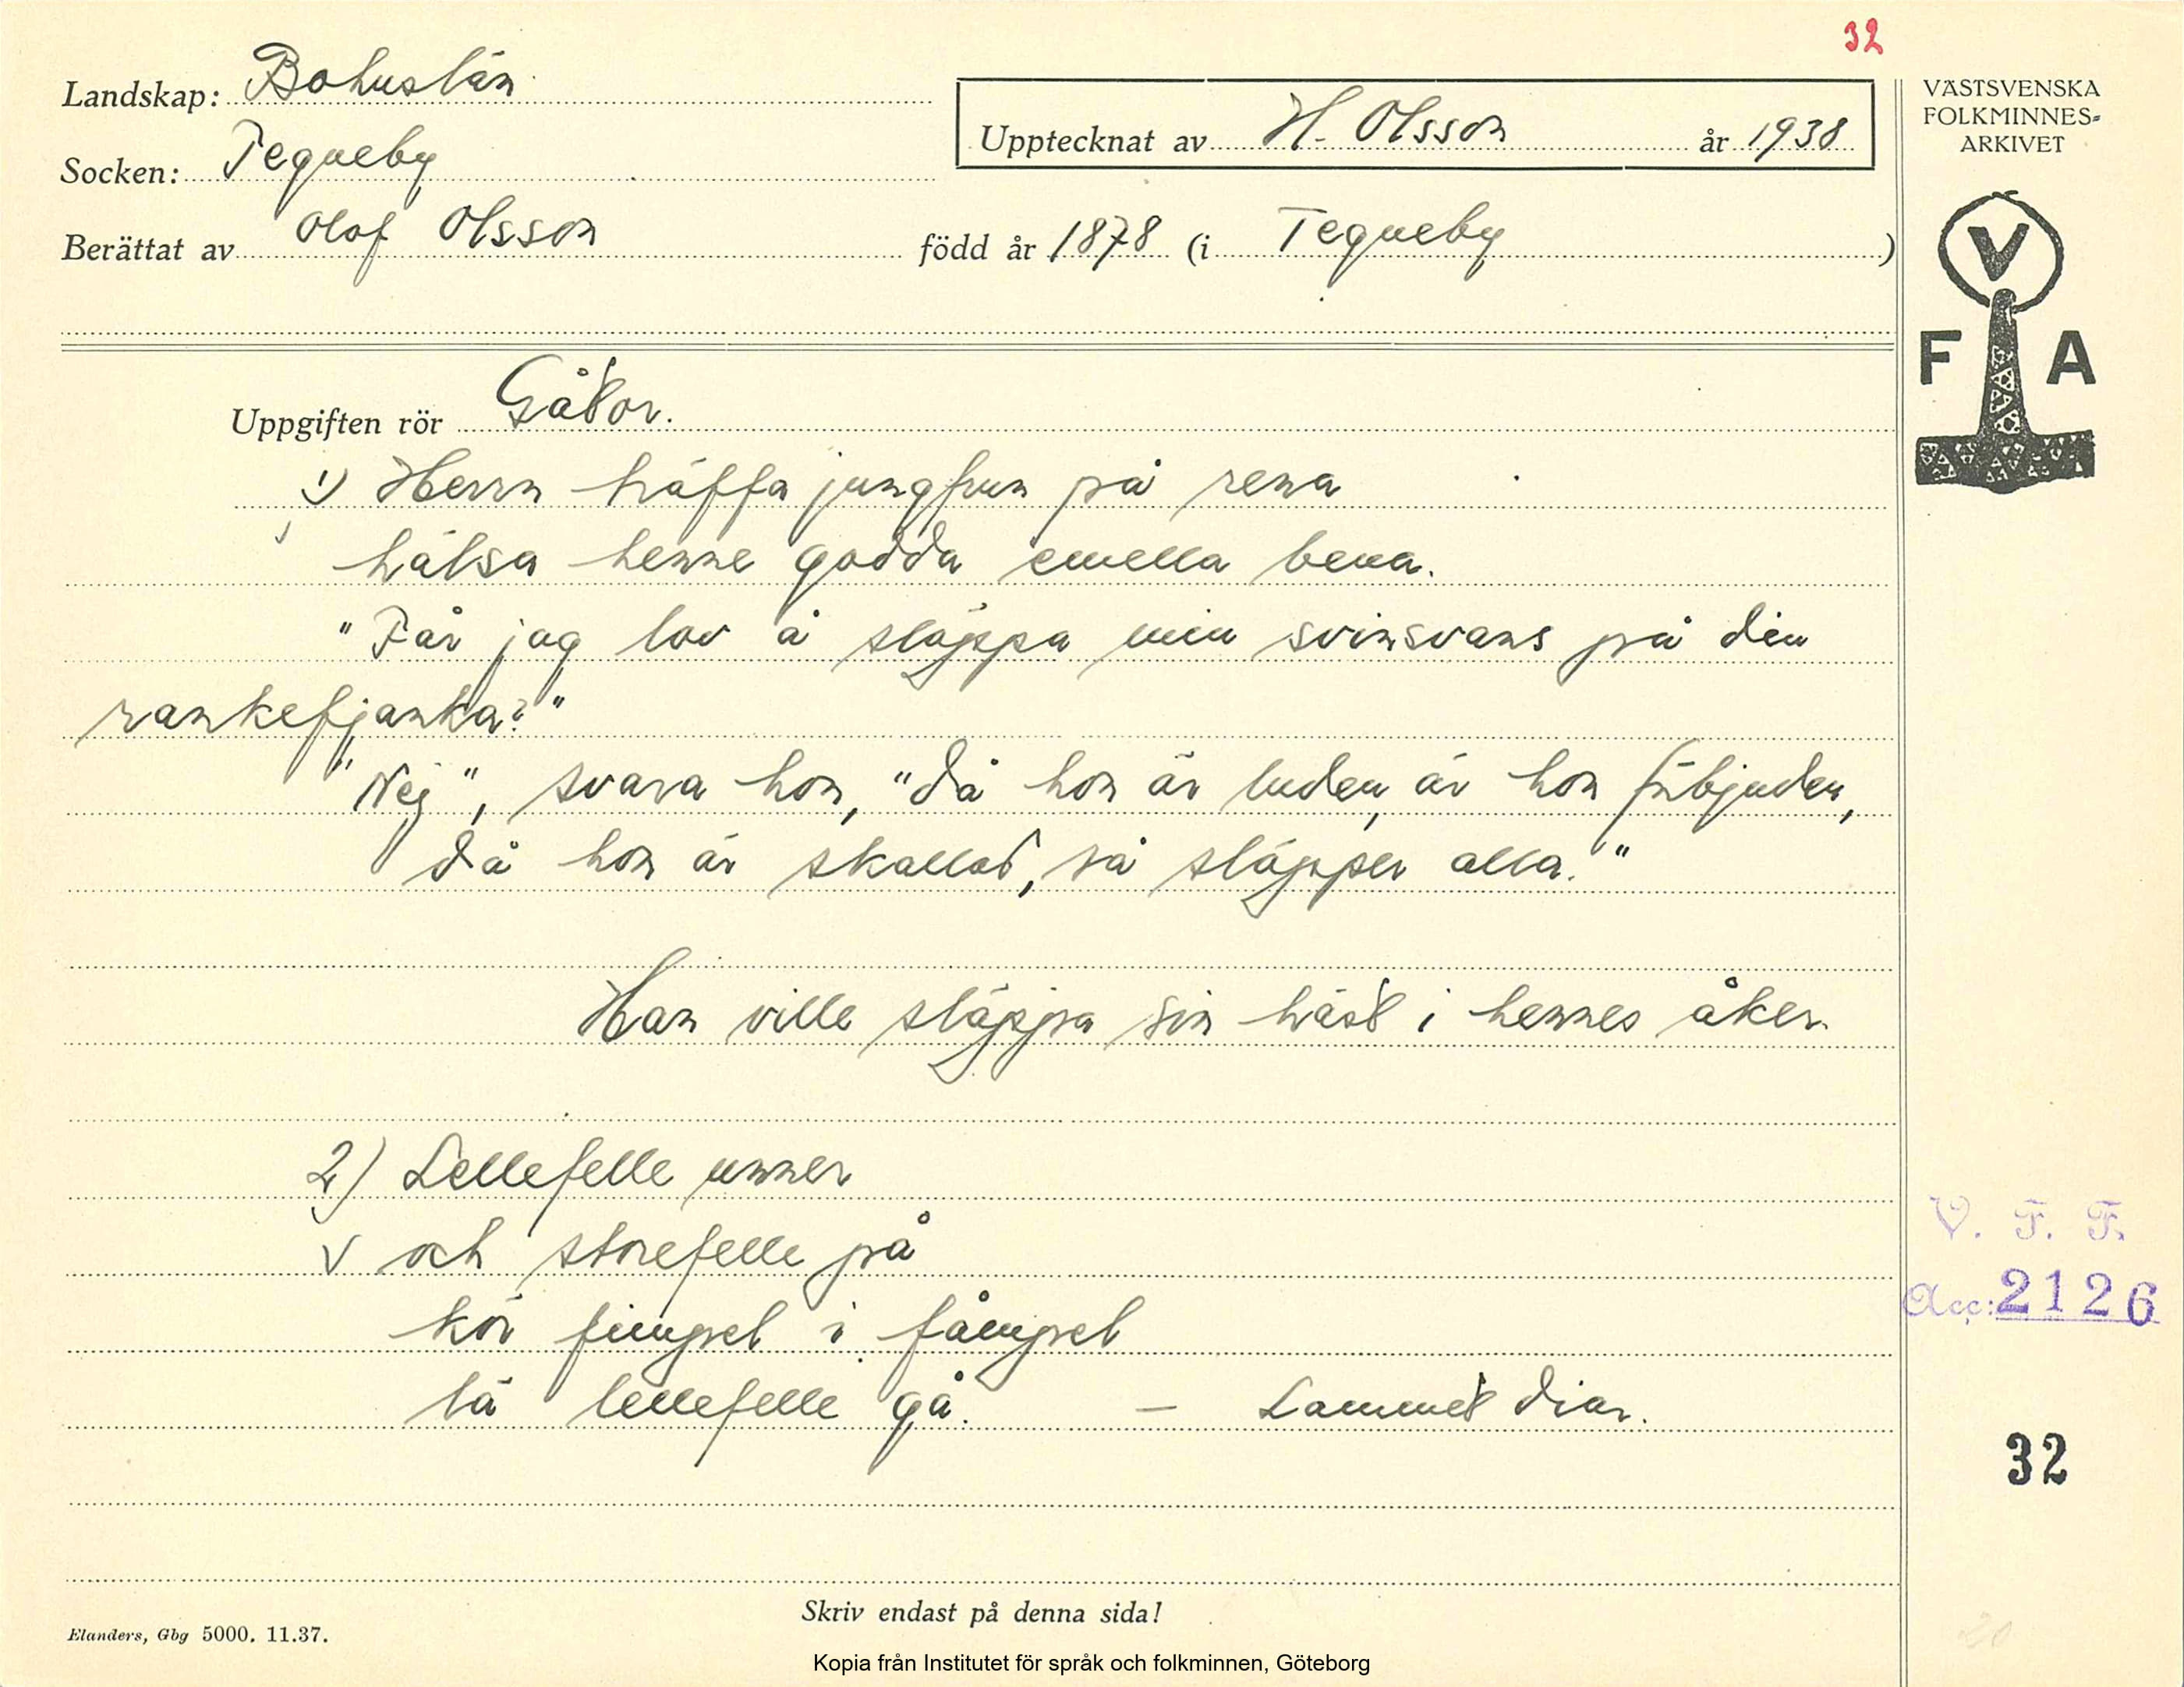 32
Landskap: Bohuslän
Socken: Tegneby
Berättat av Olof Olsson
Upptecknat av H. Olsson år 1938
född år 1878 (i Tegneby)
VÄSTSVENSKA
FOLKMINNES-
ARKIVET
V
F A
Uppgiften rör Gåtor.
1) Herrn träffa jungfrun på rena
hälsa henne godda emella bena.
"Får jag lov å släppa min svinsvans på din
rankefjanka?"
"Nej", svara hon, "då hon är luden, är hon förbjuden,
då hon är skallot, så släpper alla."
Han ville släppa sin häst i hennes åker.
2) Lellefelle unner
V och storefelle på
kör fimpel i fåmpel
lä lellefelle gå. – Lammet diar.
V. F. F.
Acc: 2126
32
Skriv endast på denna sida!
Elanders, Gbg 5000. 11.37.
20
Kopia från Institutet för språk och folkminnen, Göteborg